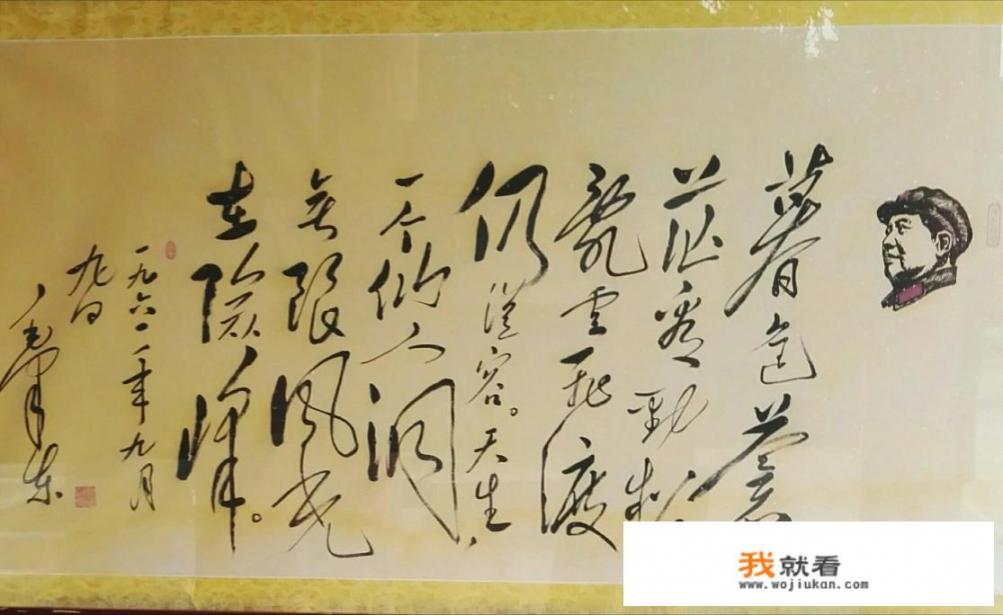 暮色蒼
茫看勁松
亂雲飛渡
仍從容。天生
一个仙人洞
無限風光
在險峰。
一九六一年九月
九日
毛澤東
我就看
www.wojiukan.com